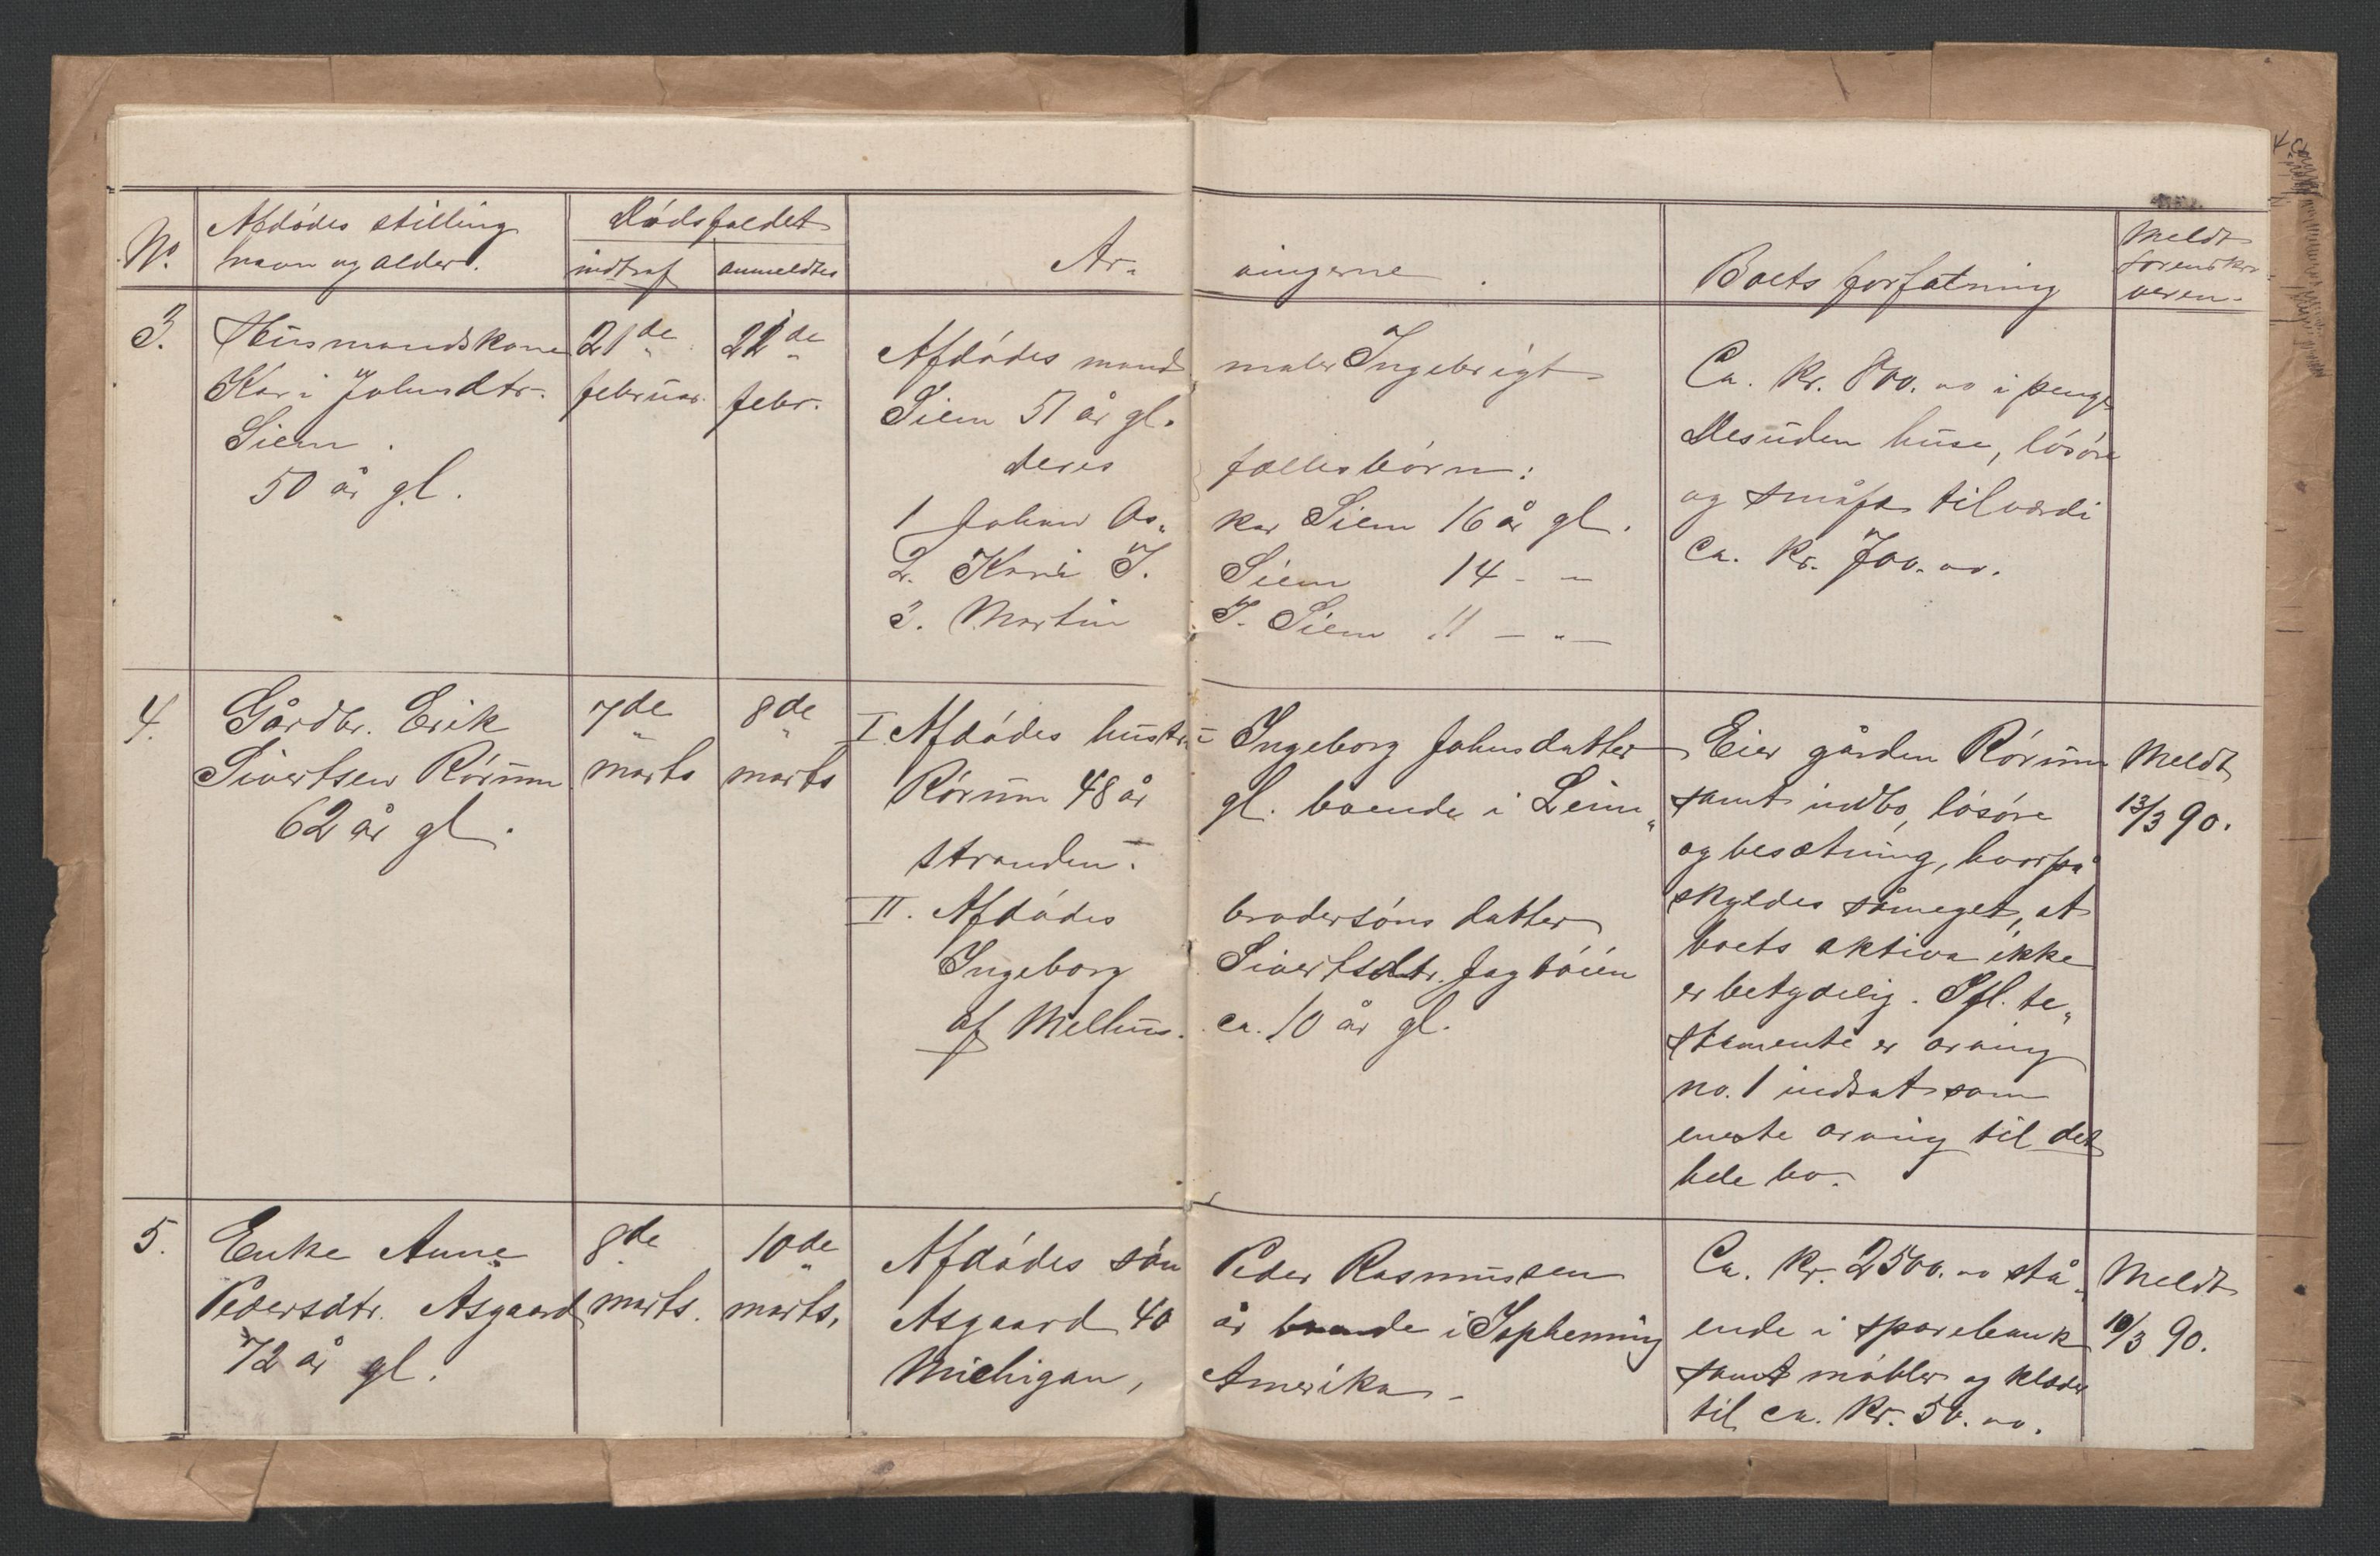 No.
Afdødes stilling
navn og alder.
Dødsfaldet
indtraf
anmeldtes
Ar-
vingerne
Boets forfatning
Meldt
sorenskri-
veren.
3.
Husmandskone
Kari Johnsdtr.
Siem.
50 år gl.
21de
februar.
22de
febr.
Afdødes mand maler Ingebrigt
Siem 51 år gl.
deres fællesbørn:
1 Johan Os„ kar Siem 16 år gl.
2. Kari I. Siem 14 - -
3. Martin I. Siem 11 - „ -
Ca. Kr. 800.00 i penge
Desuden huse, løsøre
og småfæ til værdi
Ca. Kr. 700.00.
4.
Gårdbr. Erik
Sivertsen Rörum
62 år gl.
7de
marts
8de
marts
I. Afdødes hustru Ingeborg Johnsdatter
Rörum 48 år gl. boende i Lein„
stranden.
II. Afdødes brodersöns datter
Ingeborg Sivertsdtr. Jagtöien
af Melhus. ca. 10 år gl.
Eier gården Rörum
samt indbo, løsøre
og besætning, hvorpå
skyldes såmeget, at
boets aktiva ikke
er betydelig. Ifl. te„
stamente er arving
no. 1 indsat som
eneste arving til det
hele bo.
Meldt
13/3 90.
5.
Enke Anne
Pedersdtr. Asgaard
72 år gl.
8de
marts.
10de
marts.
Afdødes søn Peder Rasmussen
Asgaard 40 år boende i Ishpeming
Michigan, Amerika.
Ca. Kr. 2500.00 stå„
ende i sparebank
samt møbler og klæder
til ca. Kr. 50.00.
Meldt
10/3 90.